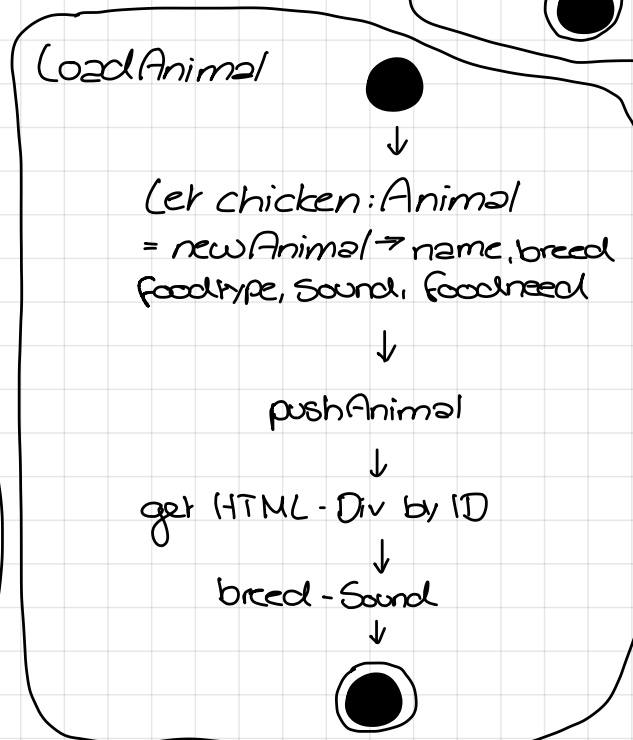 LoadAnimal
Let chicken: Animal
= newAnimal → name, breed
foodtype, sound, foodneed
pushAnimal
get HTML - Div by ID
breed - Sound